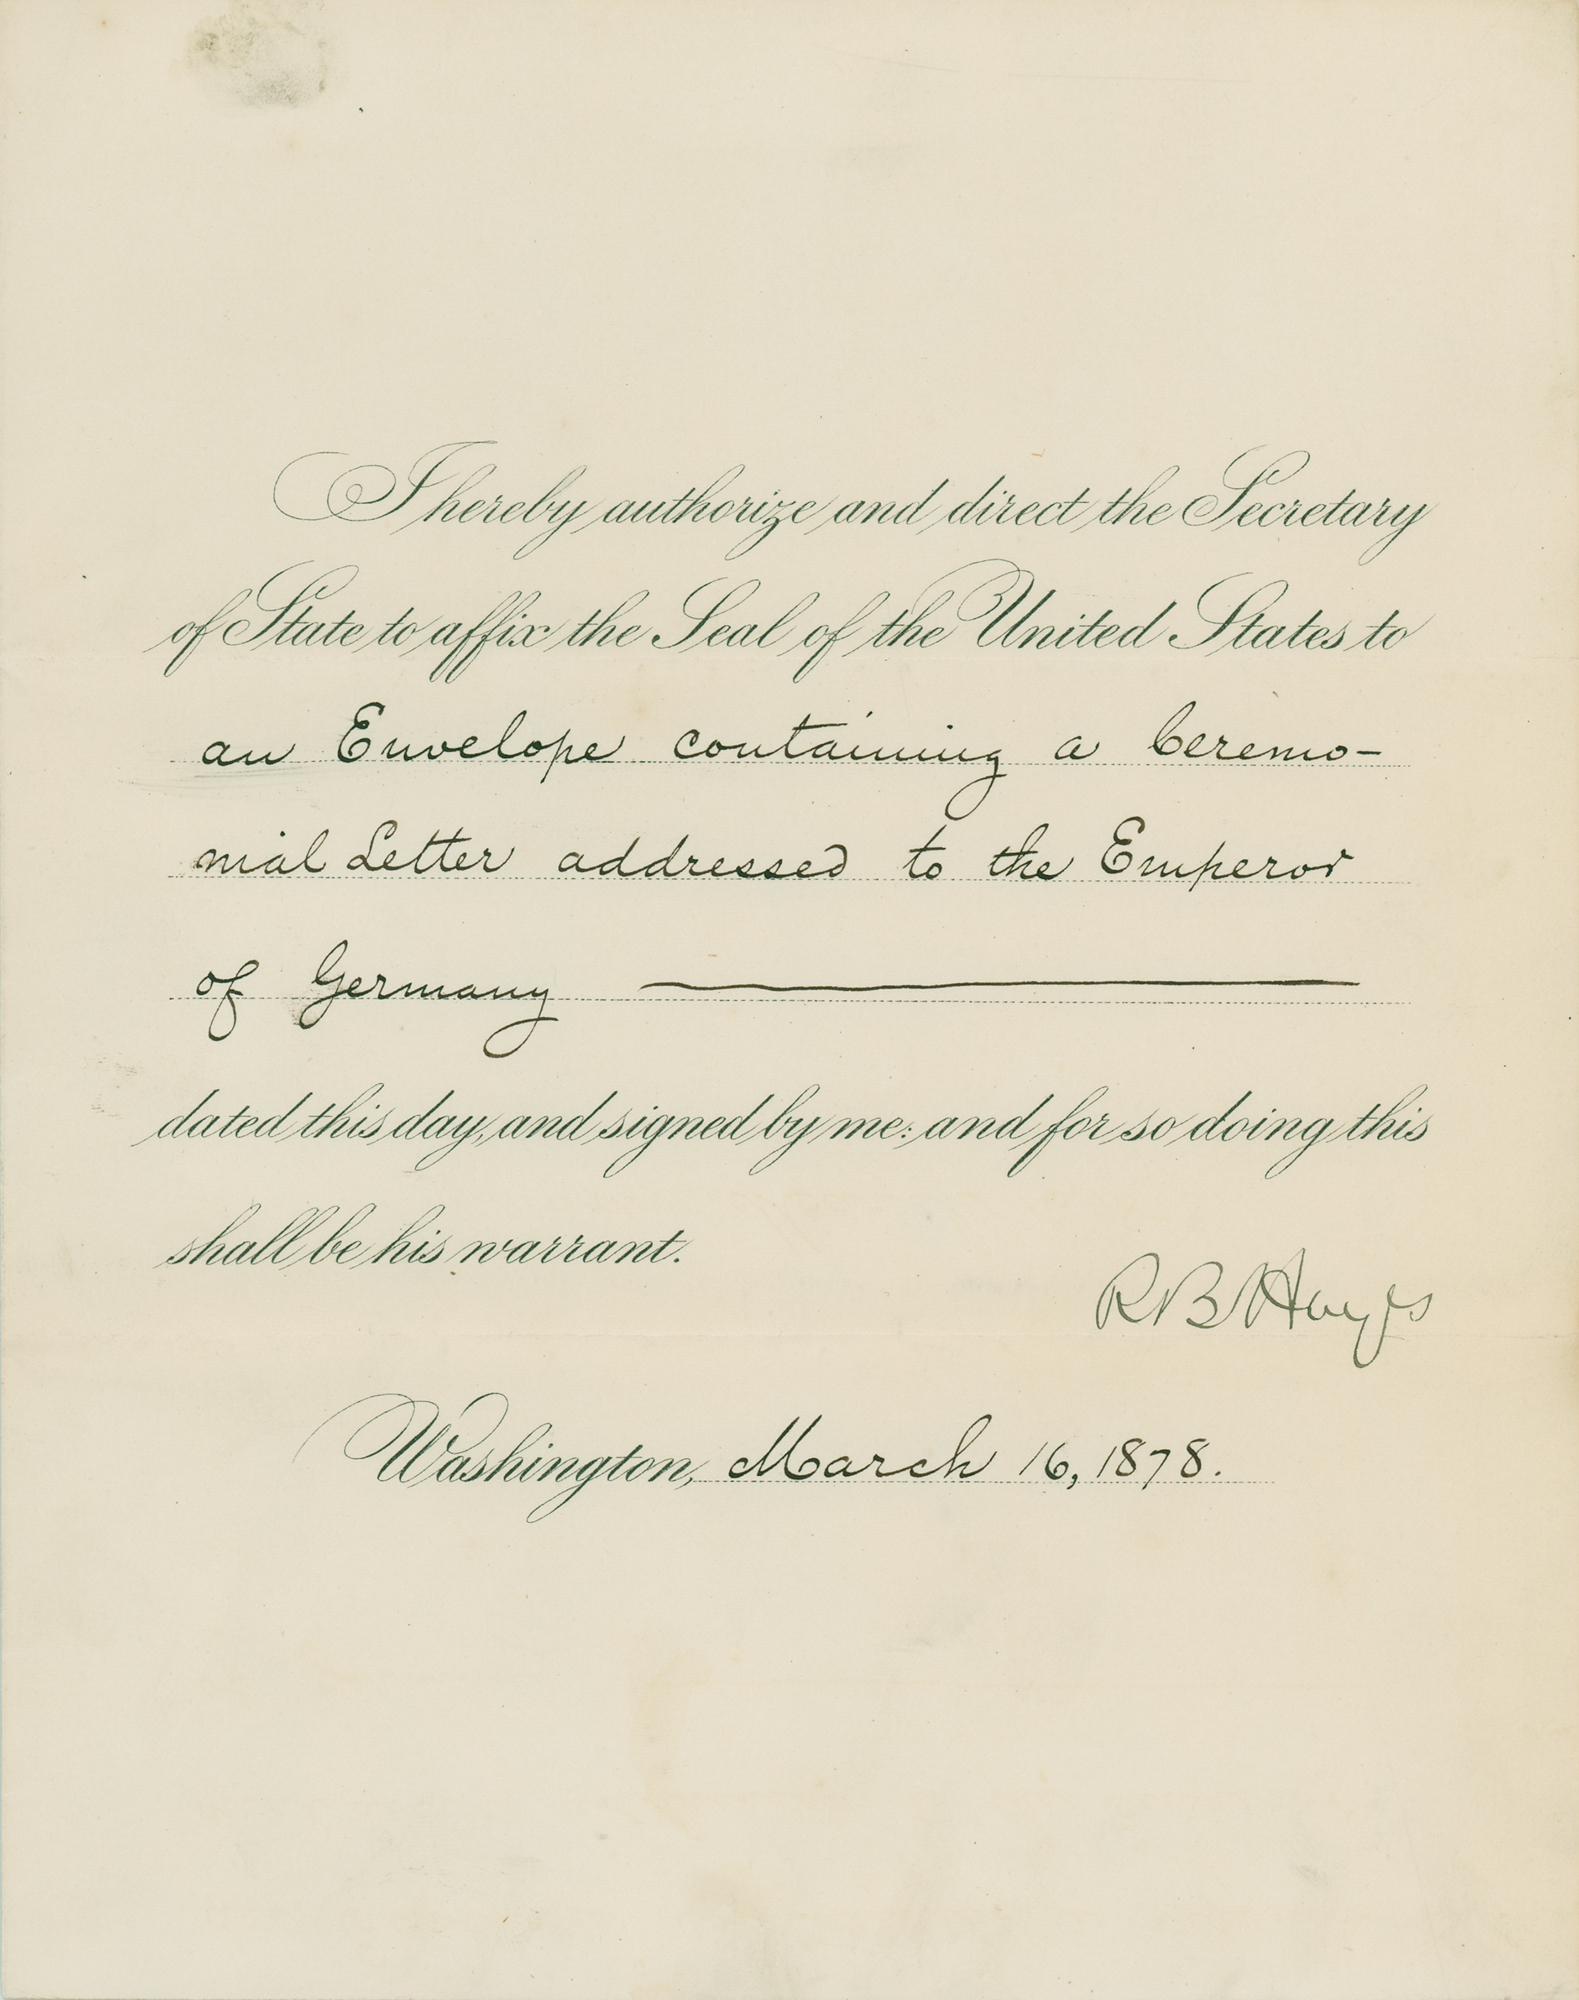 I hereby authorize and direct the Secretary
of State to affix the Seal of the United States to
an Envelope containing a Ceremo-
nial Letter addressed to the Emperor
of Germany
dated this day, and signed by me: and for so doing this
shall be his warrant.
R B Hayes
Washington, March 16, 1878.